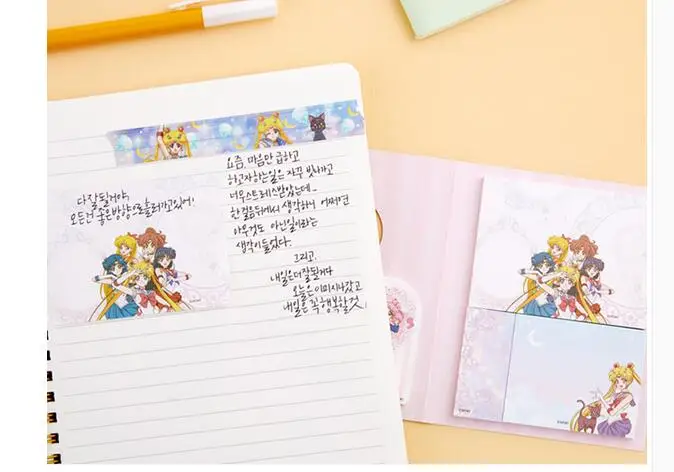 다 잘될거야,
모든건 좋은방향으로 흘러가고 있어!
요즘, 마음만 급하고
하고자하는일은 자꾸 빗나가고
너무스트레스받았는데..
한걸음뒤에서 생각하니 어쩌면
아무것도 아닌일이라는
생각이들었다.
그리고,
내일은더잘될거다
오늘은이미지나갔고
내일은 꼭 행복할것!